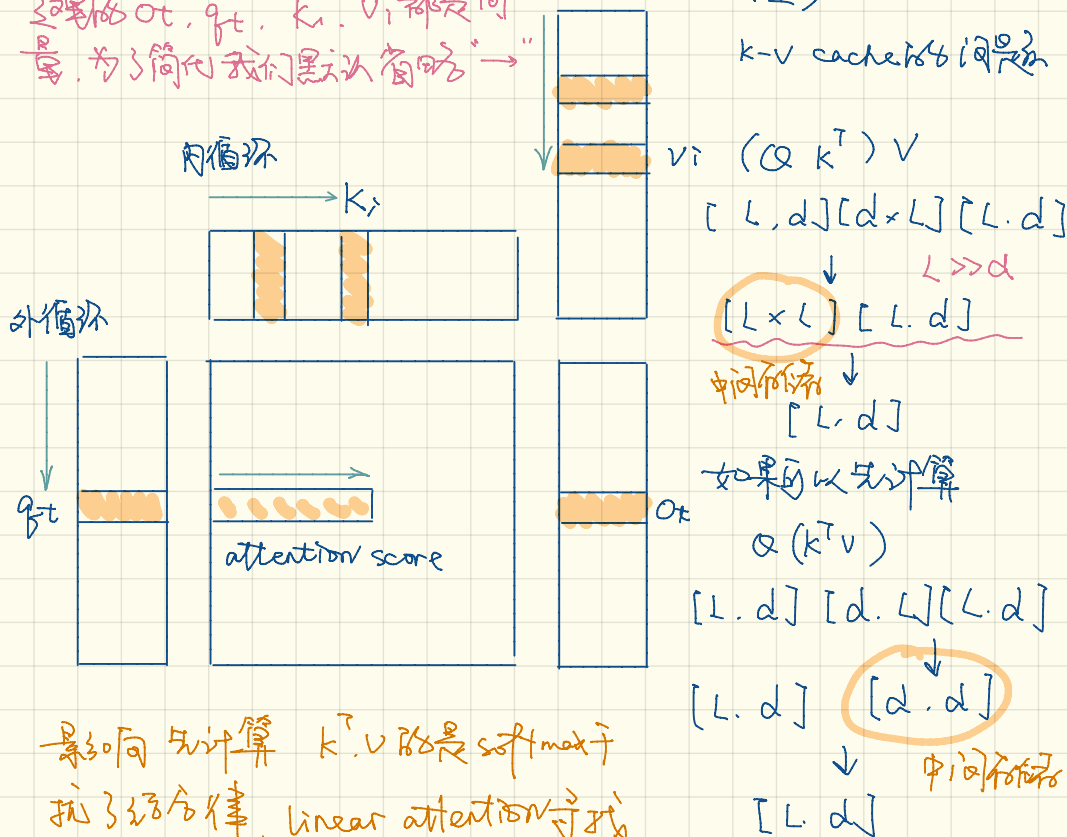 这里的 Ot, qt, Ki, Vi 都是向
量,为了简化我们默认省略"→"
内循环
Ki
外循环
qt
attention score
Vi
Ot
K-V cache的问题
(Q K^T) V
[L, d][d×L][L.d]
↓ L>>d
[L×L] [L.d]
中间存储 ↓
[L, d]
如果可以先计算
Q(K^T V)
[L.d] [d.L][L.d]
↓
[L.d] [d.d]
↓ 中间存储
[L.d]
影响 先计算 K^T.V 的是 softmax干
扰了结合律, linear attention 寻找